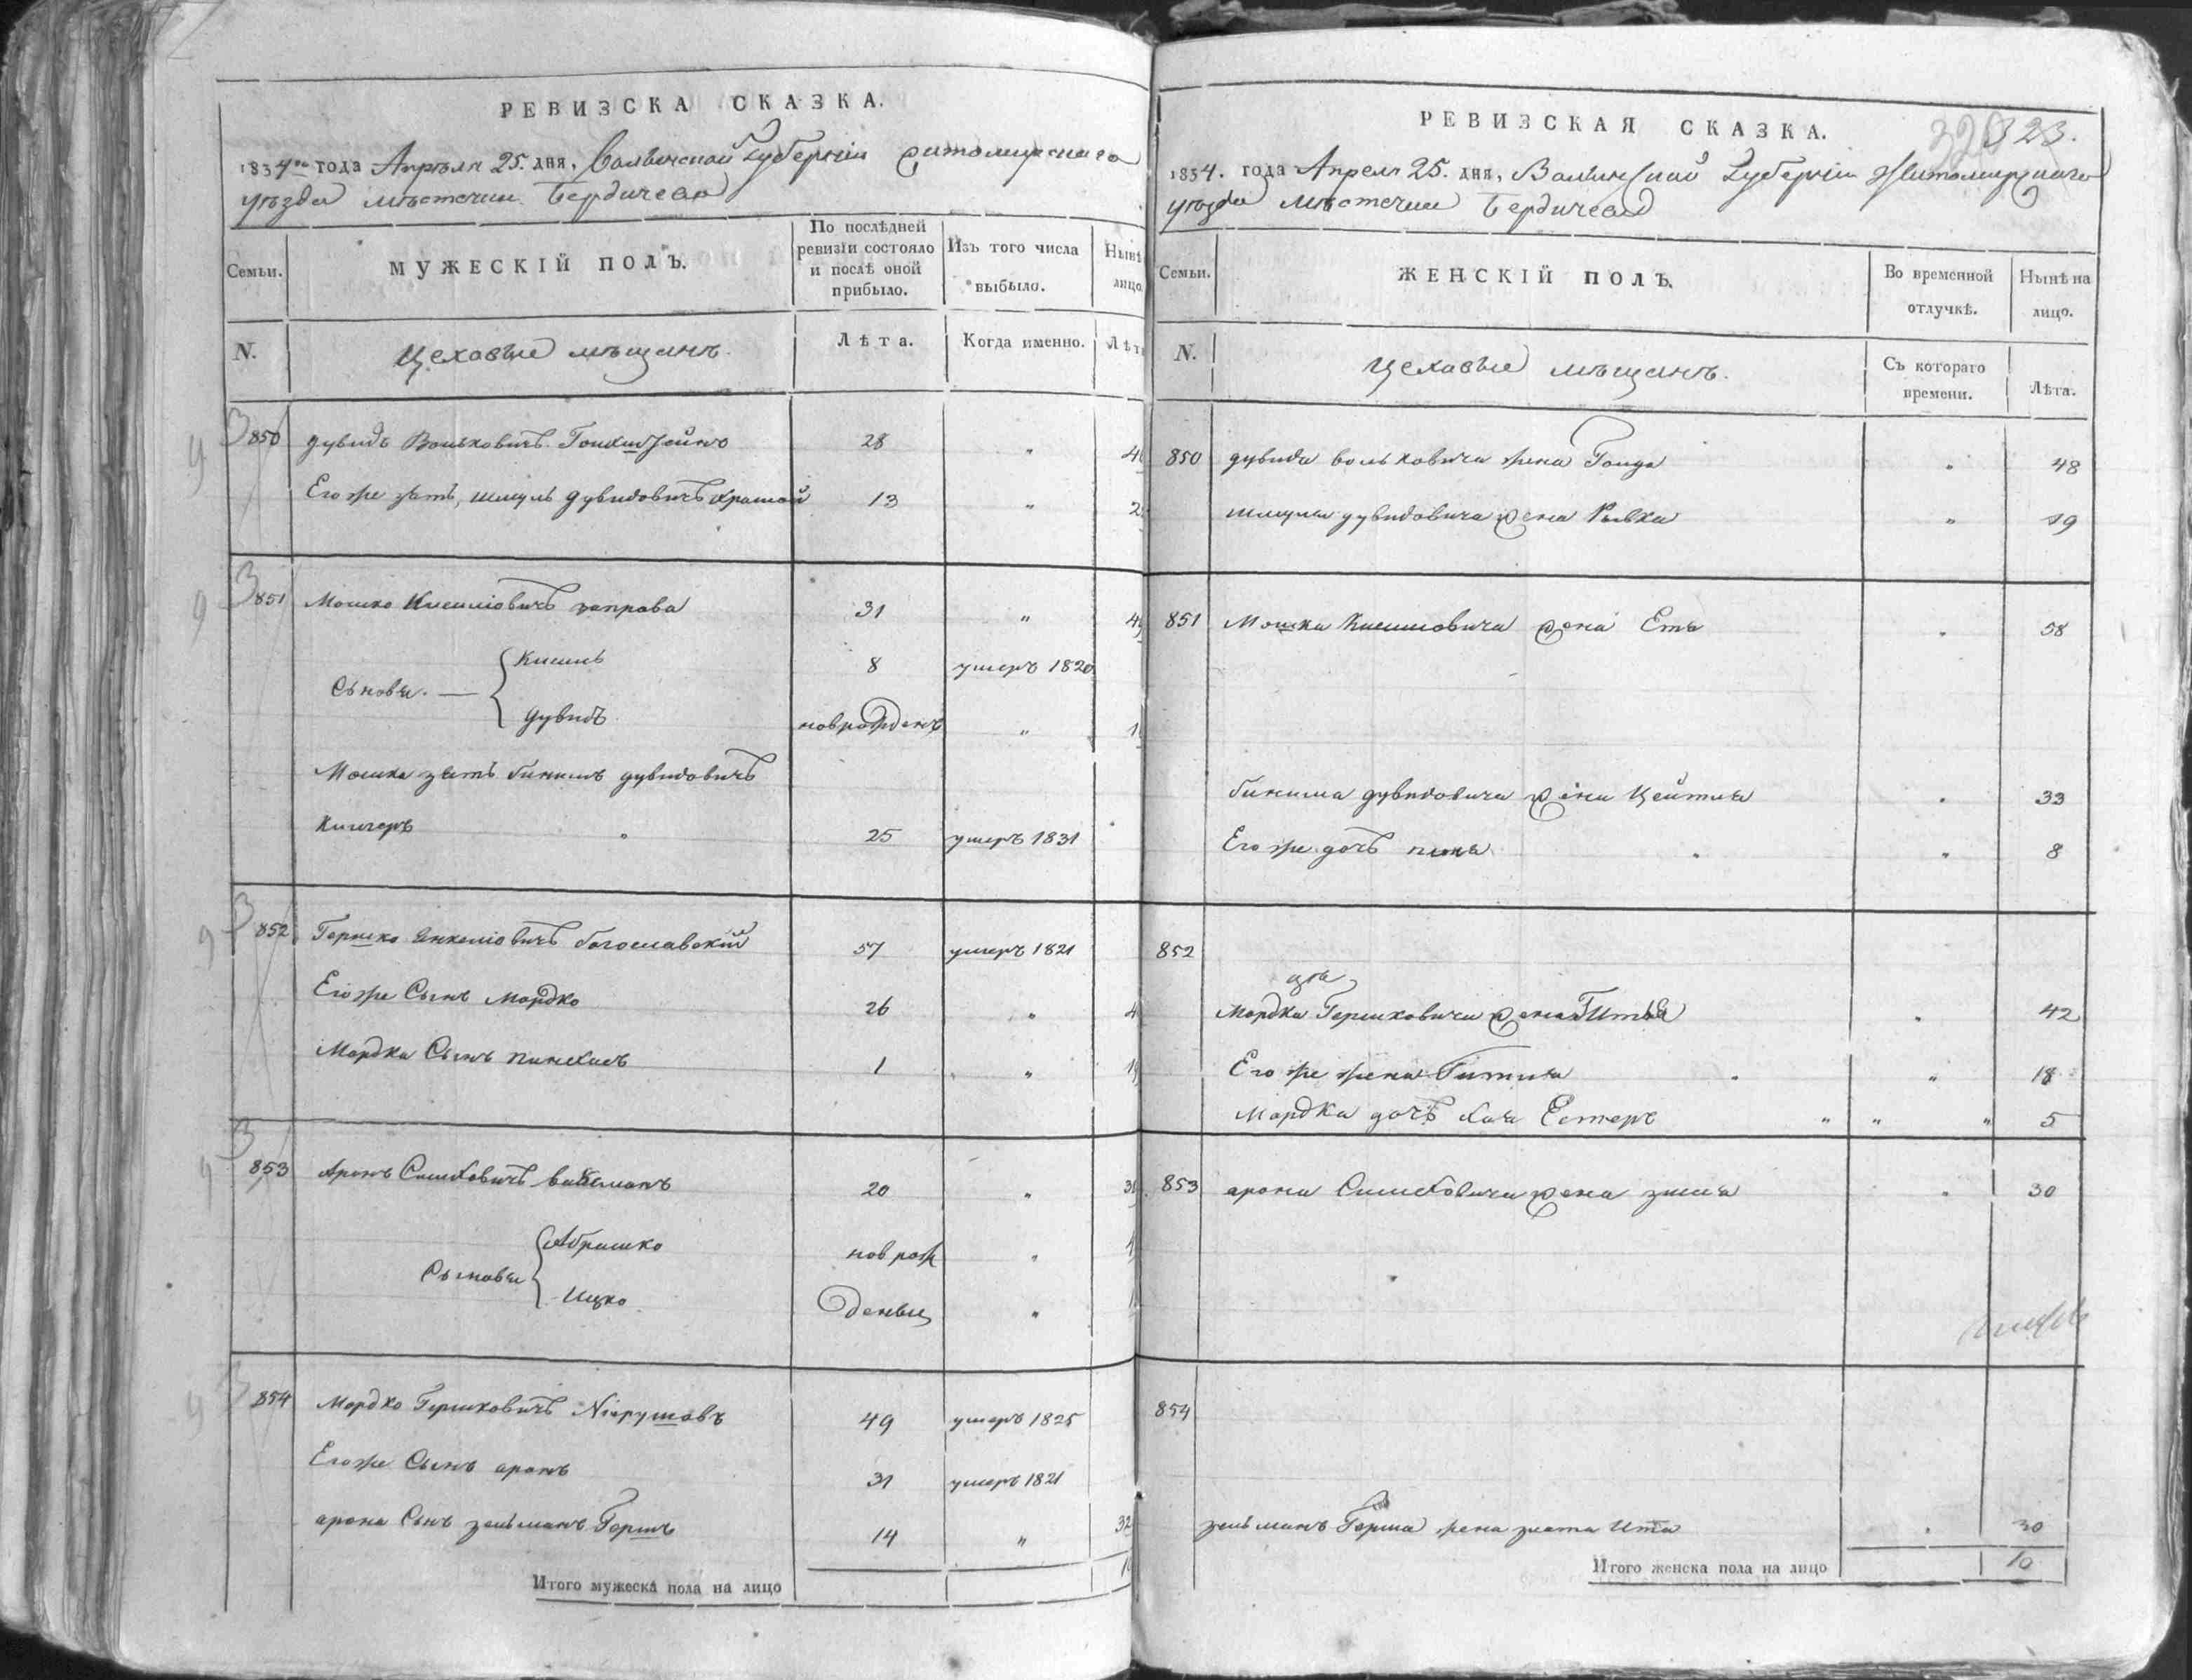 РЕВИЗСКА СКАЗКА.
1834го года Апреля 25. дня, Волынской Губернии Житомирскаго
уезда местечки Бердичева
Семьи.
МУЖЕСКІЙ ПОЛЪ.
По послѣдней
ревизіи состояло
и послѣ оной
прибыло.
Изъ того числа
выбыло.
Нынѣ
лицо.
N.
Цеховые мѣщанъ
Лѣта.
Когда именно.
Лѣт
850 дувидъ Вольковичъ 28 "
Его же зять, шмуль дувидовичъ 13 "
851 Мошко Кисилiовичъ заправа 31 "
Сыновья. — Кисиль 8 умеръ 1820
дувидъ новрожденъ "
Мошка зять бинимъ дувидовичъ
25 умеръ 1831
852 Гершко Янкелiовичъ богославскiй 57 умеръ 1821
Его же Сынъ Мордко 26 "
Мордка Сынъ пинхасъ 1 "
853 Аронъ 20 "
Сыновья Абрашко новрож "
Ицко денны "
854 Мордко Гершковичъ 49 умеръ 1825
Его же Сынъ аронъ 31 умеръ 1821
арона Сынъ зельманъ Гершъ 14 " 32
Итого мужеска пола на лицо
РЕВИЗСКАЯ СКАЗКА.
323.
1834. года Апреля 25. дня, Волынской Губерніи Житомирскаго
уезда Местечки Бердичева
Семьи.
ЖЕНСКІЙ ПОЛЪ.
Во временной
отлучкѣ.
Нынѣ на
лицо.
N.
Цеховые мѣщанъ.
Съ котораго
времени.
Лѣта.
850 дувида вольковича жена " 48
шмуля дувидовича жена Ривка " 19
851 Мошка Кисилiовича жена Етя " 58
бинима дувидовича жена Цейтля " 33
Его же дочь " 8
852
Мордка Гершковича жена " 42
Его же жена Гитля " 18
Мордка дочь хая Естеръ " " " 5
853 арона жена " 30
854
зельманъ Герша жена злата Ита " 30
Итого женска пола на лицо 10